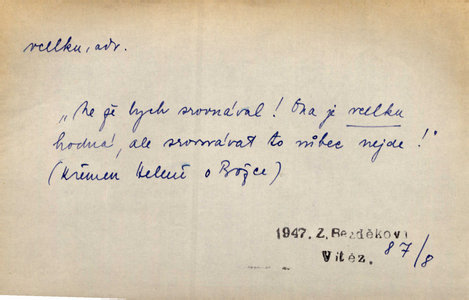 vcelku, adv.
„Ne že bych srovnával! Ona je vcelku
hodná, ale srovnávat to vůbec nejde!"
(Křemen Heleně o Božce)
1947. Z. Bezděková
Vítěz. 87/8